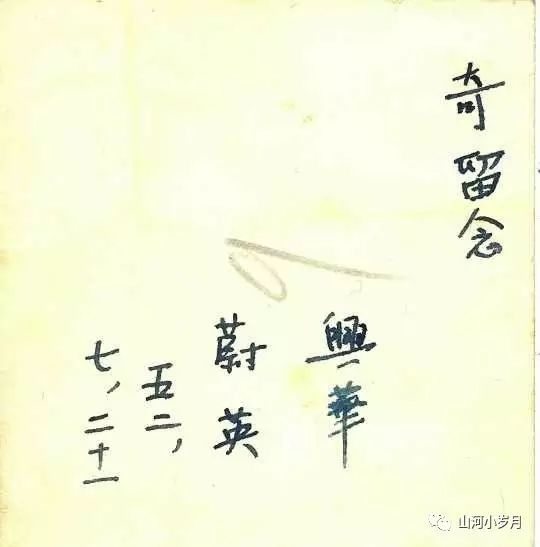 奇留念
興華
蔚英
五二,
七、二十一
山河小岁月